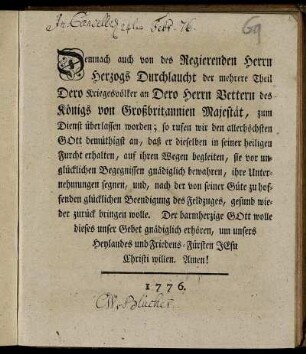 Febr. 76.
69
Demnach auch von des Regierenden Herrn
Herzogs Durchlaucht der mehrere Theil
Dero Kriegesvölker an Dero Herrn Vettern des
Königs von Großbritannien Majestät, zum
Dienst überlassen worden; so rufen wir den allerhöchsten
GOtt demüthigst an, daß er dieselben in seiner heiligen
Furcht erhalten, auf ihren Wegen begleiten, sie vor un-
glücklichen Begegnissen gnädiglich bewahren, ihre Unter-
nehmungen segnen, und, nach der von seiner Güte zu hof-
fenden glücklichen Beendigung des Feldzuges, gesund wie-
der zurück bringen wolle. Der barmherzige GOtt wolle
dieses unser Gebet gnädiglich erhören, um unsers
Heylandes und Friedens-Fürsten JEsu
Christi willen. Amen!
1776.